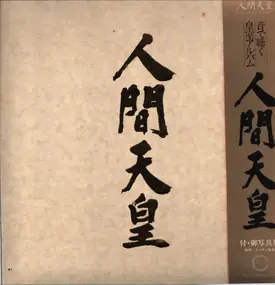 人間天皇
人間天皇
音で綴る
皇室アルバム
人間天皇